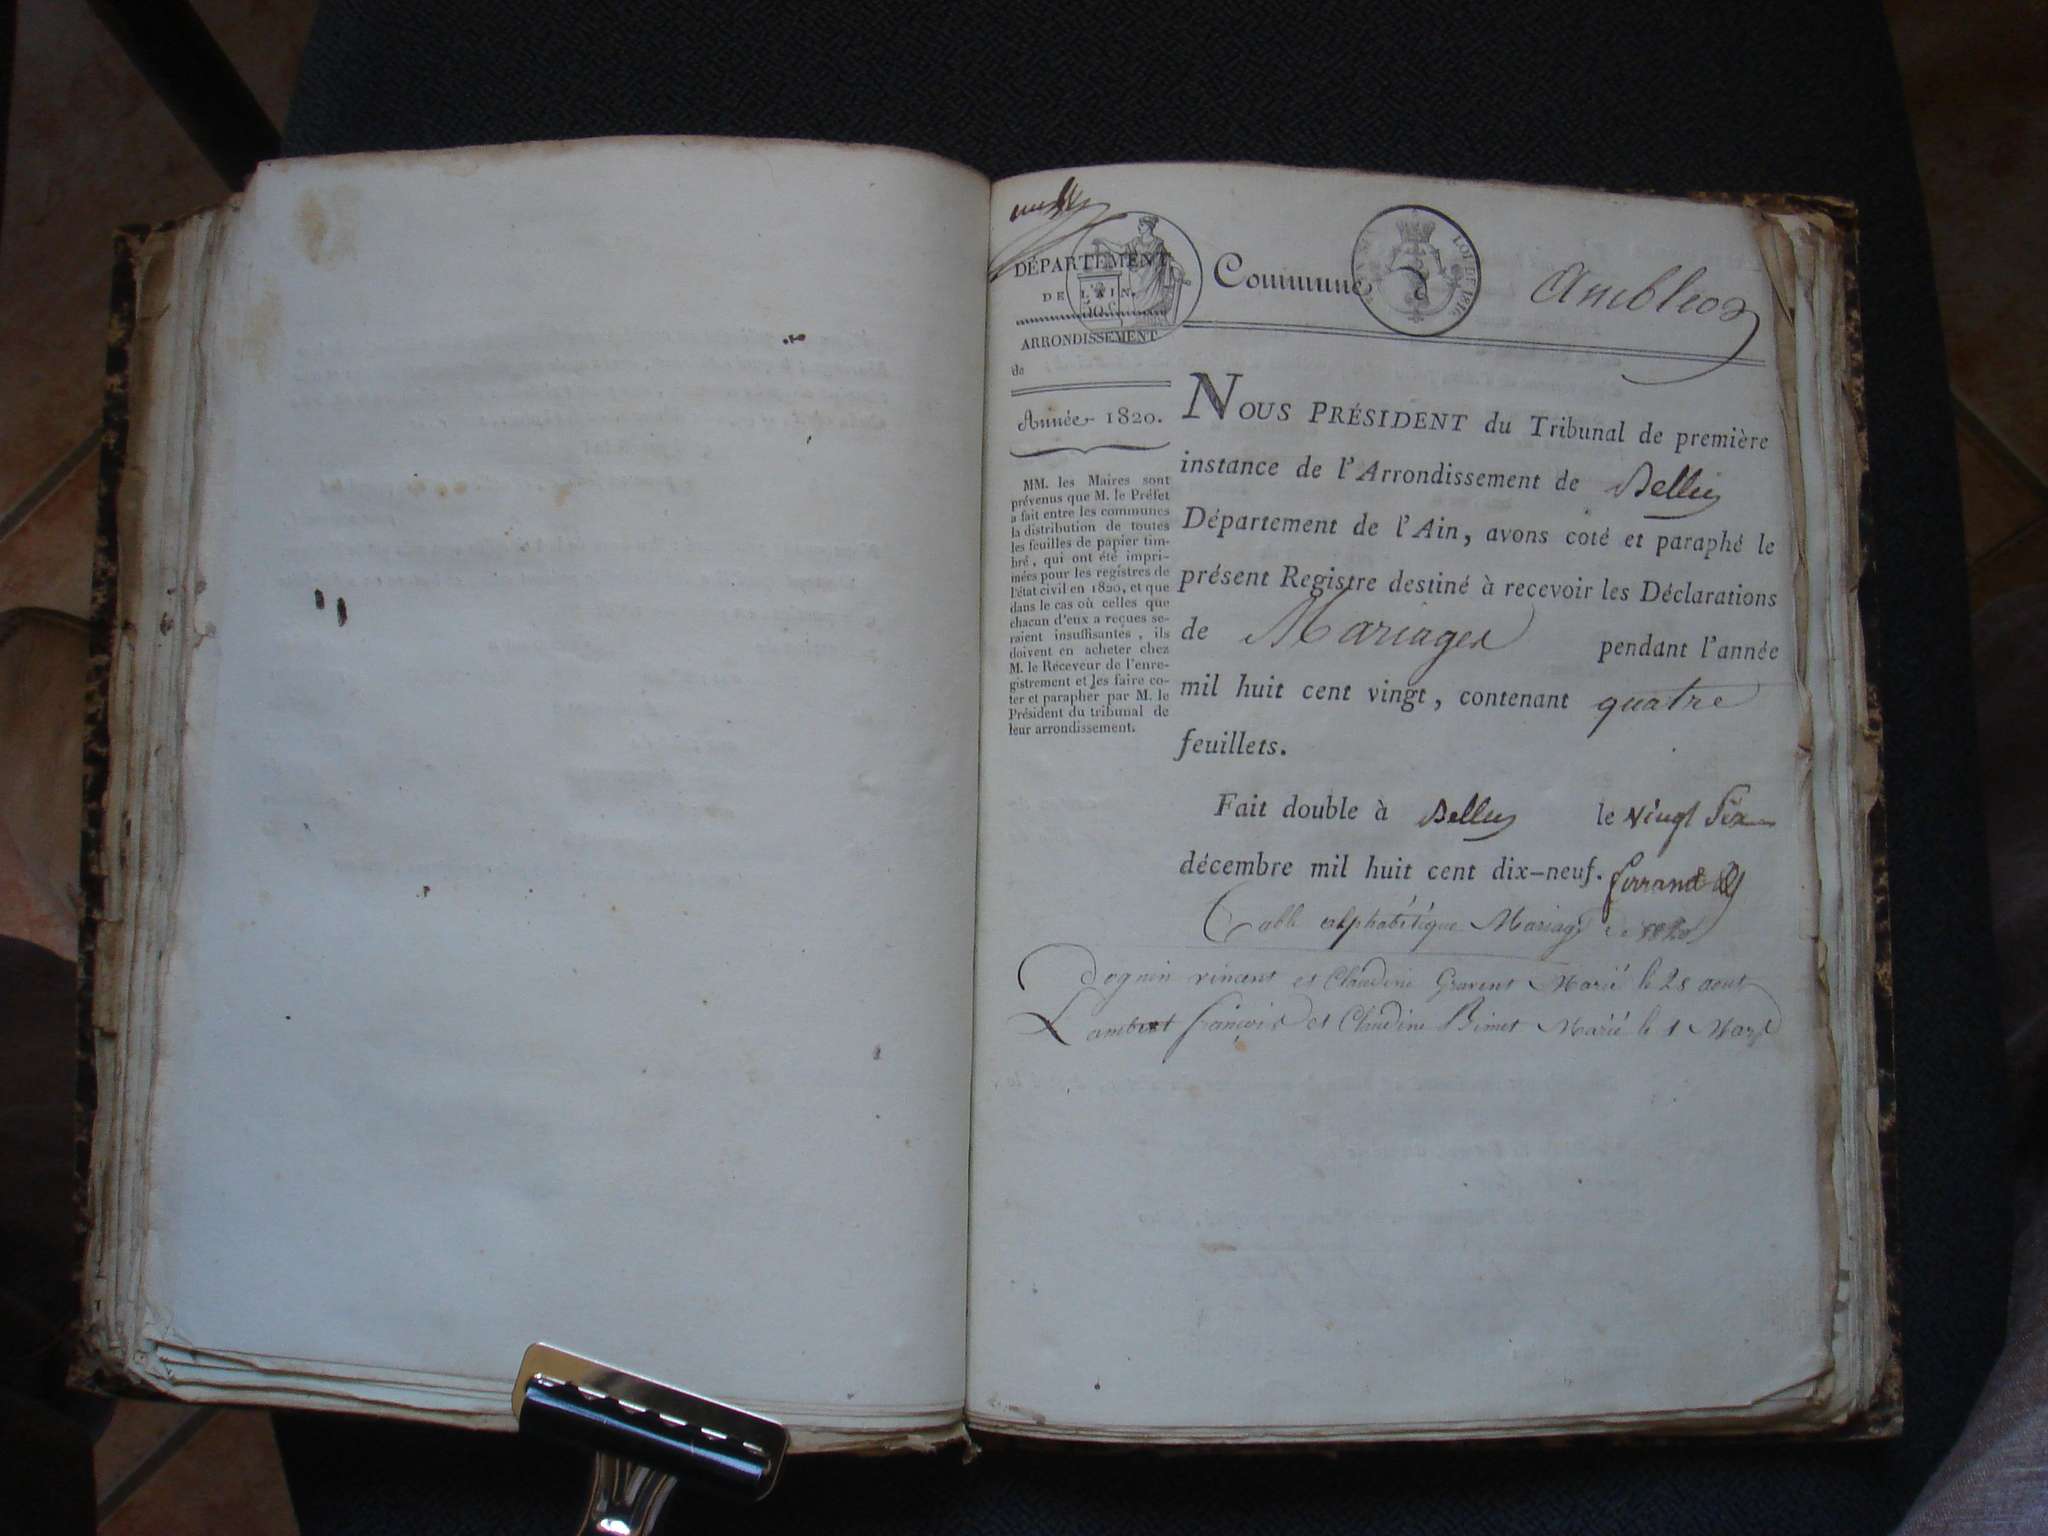 DÉPARTEMENT
DE L'AIN.
ARRONDISSEMENT
de
Année 1820.
MM. les Maires sont
prévenus que M. le Préfet
a fait entre les communes
la distribution de toutes
les feuilles de papier tim-
bré, qui ont été impri-
mées pour les registres de
l'état civil en 1820, et que
dans le cas où celles que
chacun d'eux a reçues se-
raient insuffisantes, ils
doivent en acheter chez
M. le Receveur de l'enre-
gistrement et les faire co-
ter et parapher par M. le
Président du tribunal de
leur arrondissement.
Commune d Ambléon
LOI DE 1816
NOUS PRÉSIDENT du Tribunal de première
instance de l'Arrondissement de Belley
Département de l'Ain, avons coté et paraphé le
présent Registre destiné à recevoir les Déclarations
de Mariages pendant l'année
mil huit cent vingt, contenant quatre
feuillets.
Fait double à Belley le vingt six
décembre mil huit cent dix-neuf. ferrand
Table alphabétique Mariage de 1820
Doguin vincent et Claudine Gravent Marié le 28 aout
Lambert françois et Claudine Bimet Marié le 1 Mars